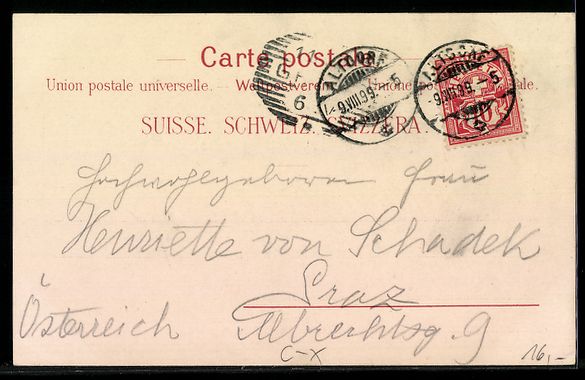 Carte postale.
Union postale universelle. — Weltpostverein. — Unione postale
SUISSE. SCHWEIZ. SVIZZERA
11
6
ALTDORF
9.VIII.99.-5
ALTDORF
-9.VIII.99.-5
10
Hochwohlgeboren Frau
Henriette von Schadek
Graz
Österreich Albrechtsg. 9
C-X
16,-